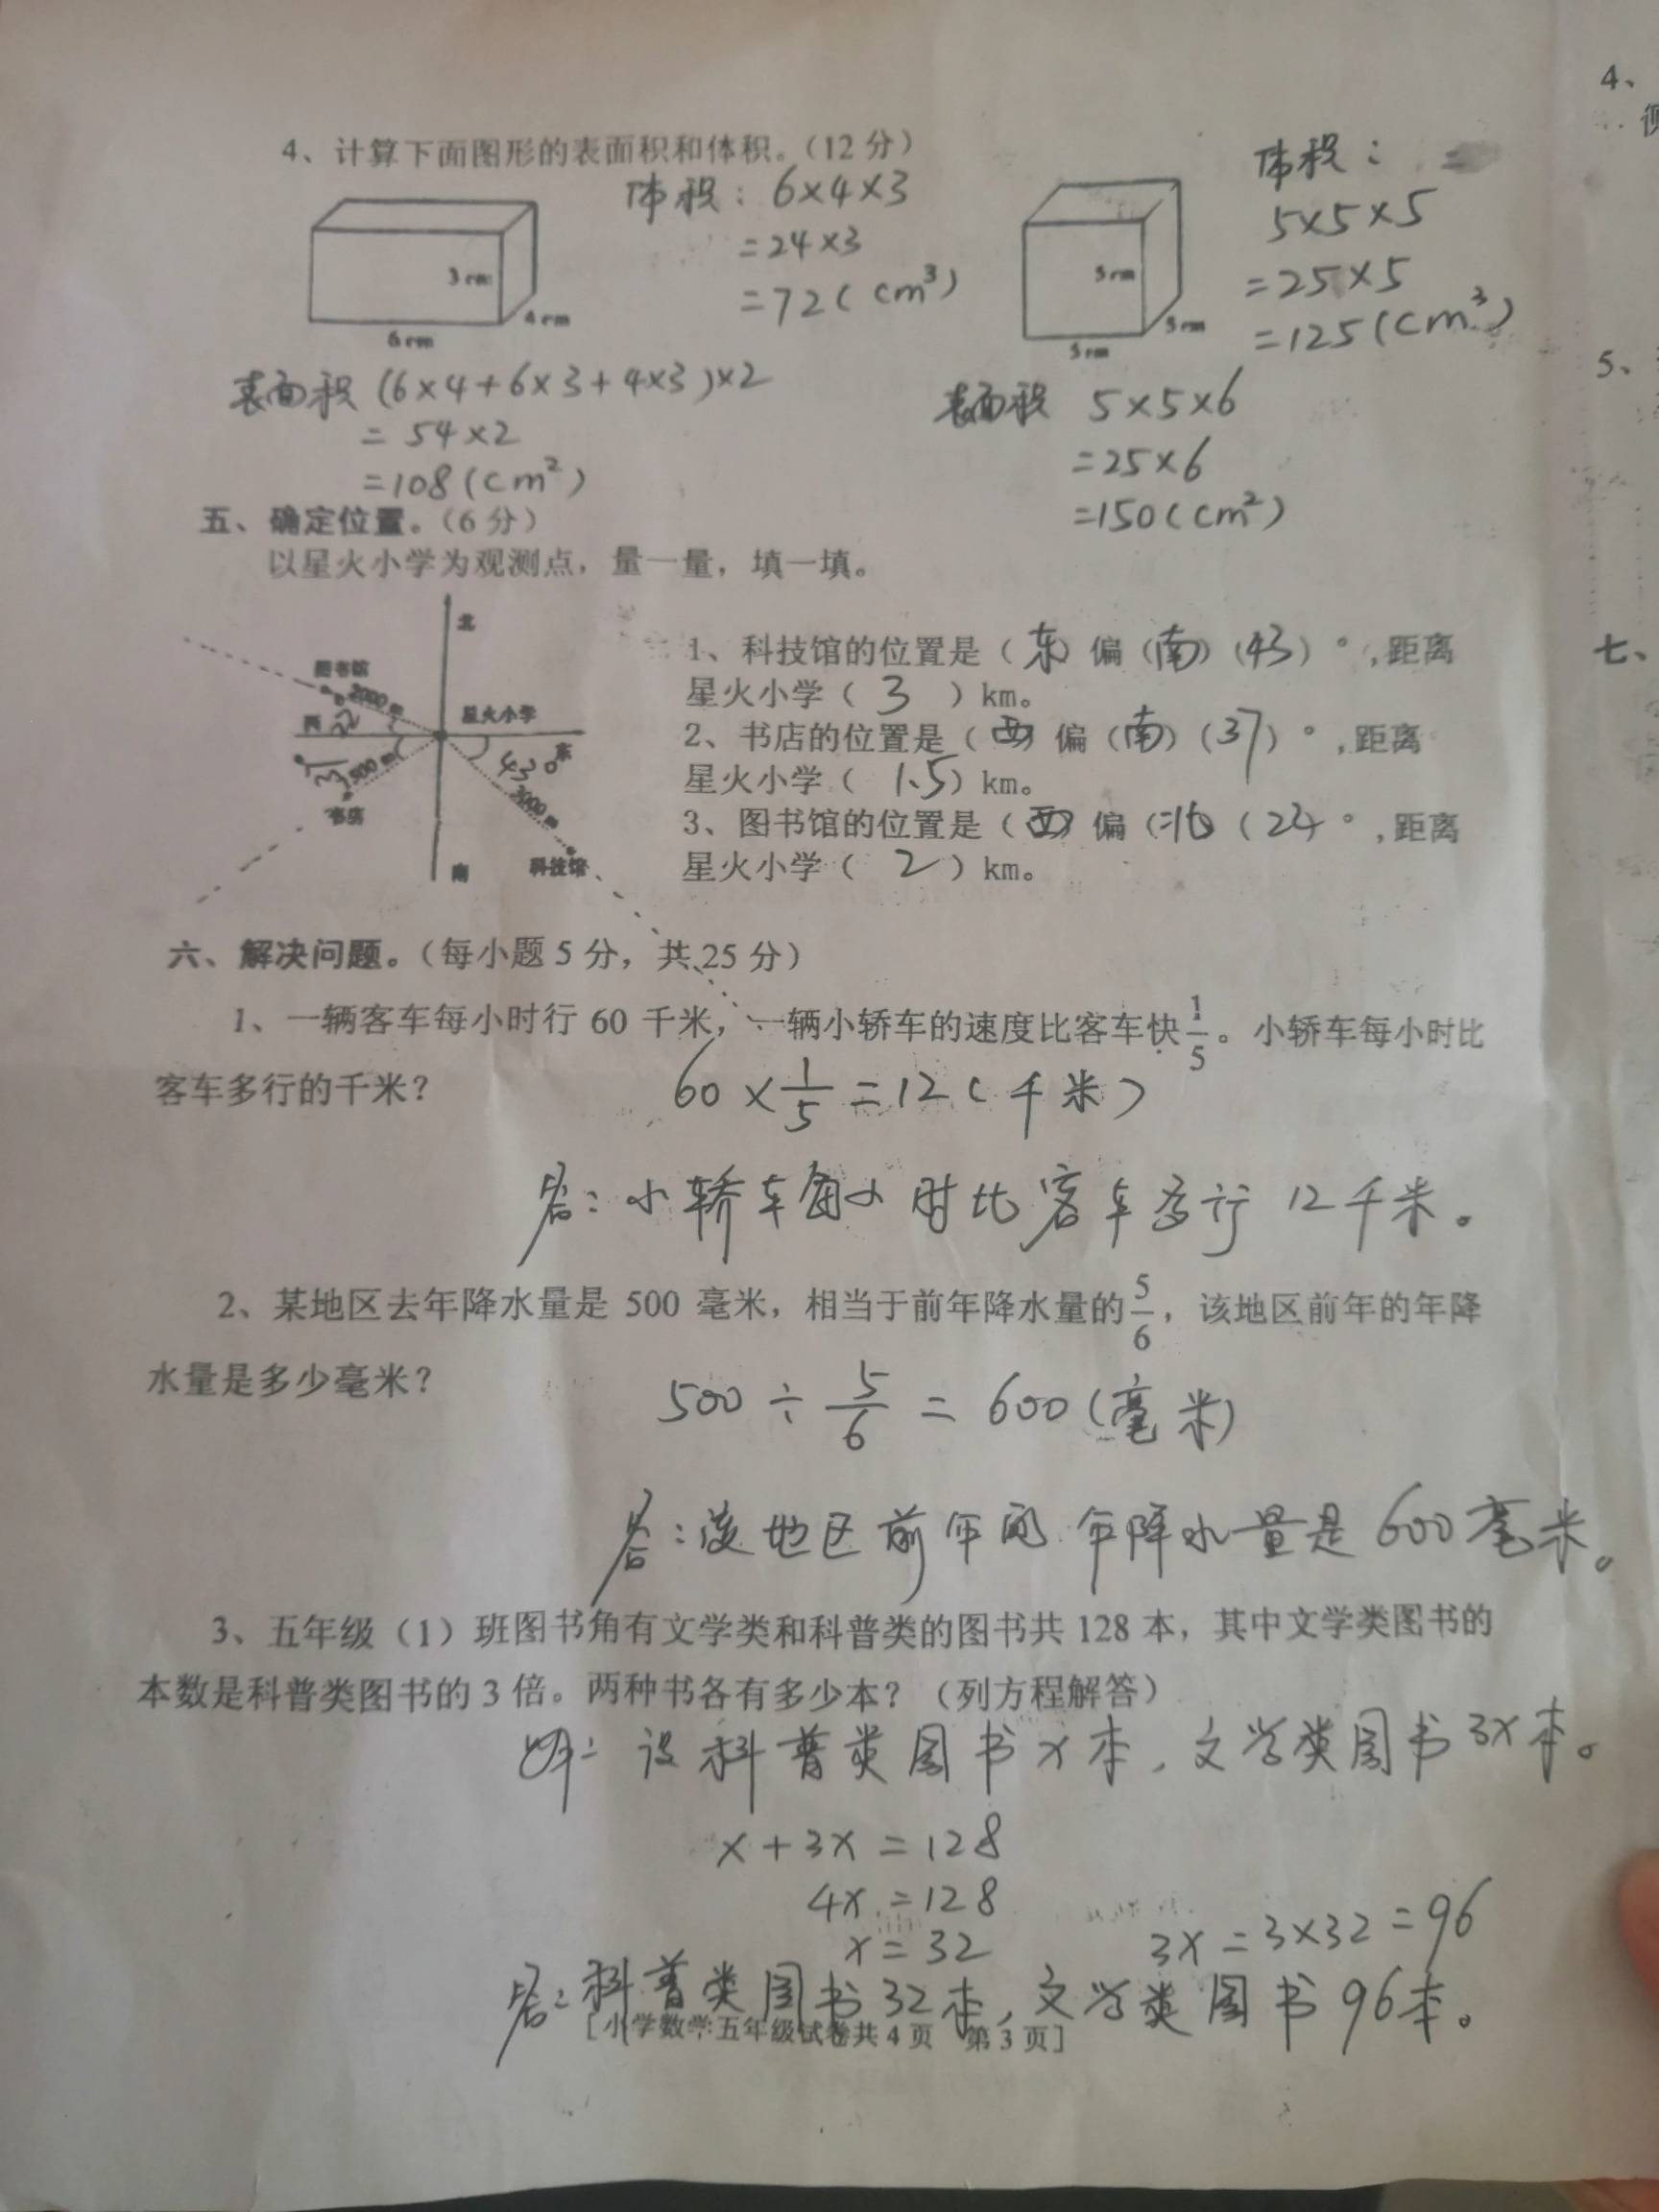 4、计算下面图形的表面积和体积。（12分）
体积：6×4×3
=24×3
=72(cm³)
3cm
4cm
6cm
体积： =
5×5×5
=25×5
=125(cm³)
5cm
5cm
5cm
表面积 (6×4+6×3+4×3)×2
= 54×2
=108(cm²)
表面积 5×5×6
=25×6
=150(cm²)
五、确定位置。（6分）
以星火小学为观测点，量一量，填一填。
北
图书馆
2000m
西
星火小学
东
43°
1500m
书店
3000m
科技馆
南
1、科技馆的位置是（东）偏（南）（43）°，距离
星火小学（ 3 ）km。
2、书店的位置是（西）偏（南）（37）°，距离
星火小学（ 1.5）km。
3、图书馆的位置是（西）偏（北）（ °，距离
星火小学（ 2 ）km。
六、解决问题。（每小题5分，共25分）
1、一辆客车每小时行60千米，一辆小轿车的速度比客车快1/5。小轿车每小时比
客车多行的千米？
60×1/5=12(千米)
答：小轿车每小时比客车多行12千米。
2、某地区去年降水量是500毫米，相当于前年降水量的5/6，该地区前年的年降
水量是多少毫米？
500÷5/6=600(毫米)
答：该地区前年的年降水量是600毫米。
3、五年级（1）班图书角有文学类和科普类的图书共128本，其中文学类图书的
本数是科普类图书的3倍。两种书各有多少本？（列方程解答）
解：设科普类图书x本，文学类图书3x本。
x+3x=128
4x=128
x=32
3x=3×32=96
答：科普类图书32本，文学类图书96本。
［小学数学五年级试卷共4页 第3页］
4、
5、
七、